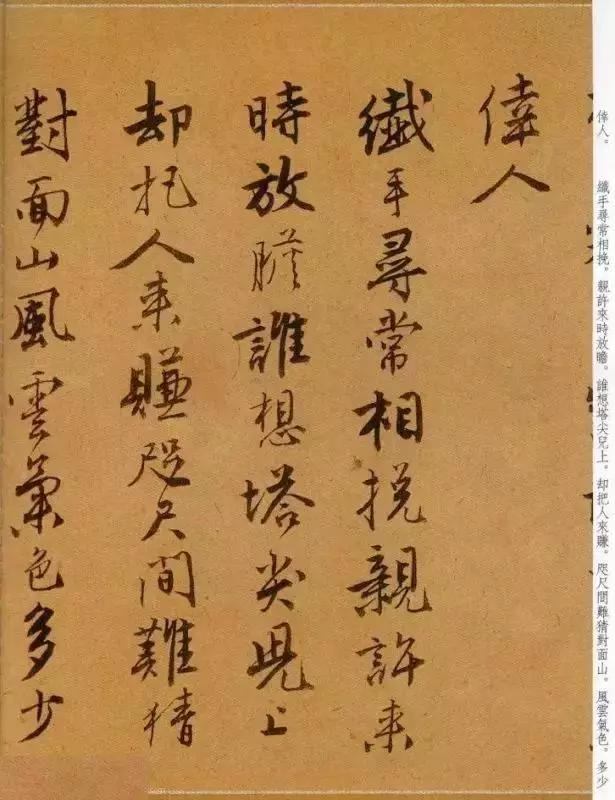 偉人。　纖手尋常相挽。親許來時放瞻。誰想塔尖兄上。却把人來賺。咫尺間難猜對面山。風雲氣色。多少
偉人
纖手尋常相挽親許来
時放膽誰想塔尖兒上
却把人来賺咫尺間難猜
對面山風雲氣色多少